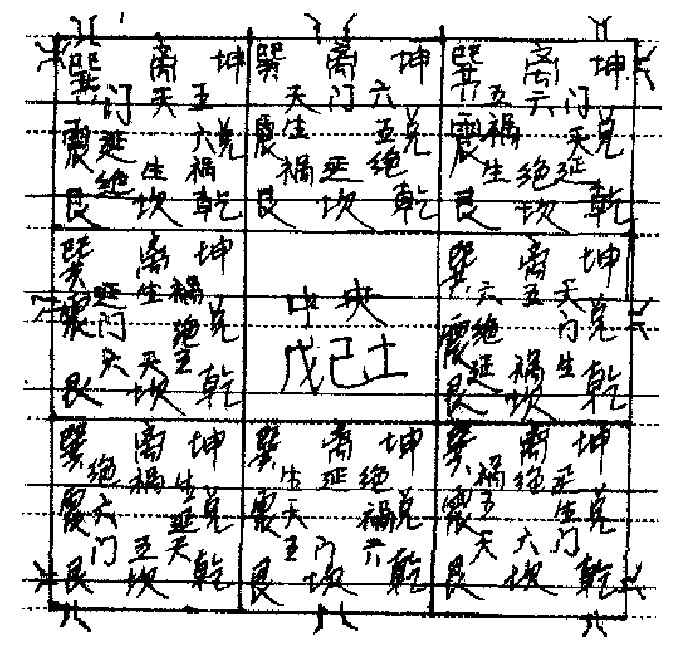 巽 离 坤
门 天 五
震 延 六 兑
绝 生 祸
艮 坎 乾
巽 离 坤
天 门 六
震 生 五 兑
祸 延 绝
艮 坎 乾
巽 离 坤
五 六 门
震 祸 天 兑
生 绝 延
艮 坎 乾
巽 离 坤
延 生 祸
震 门 绝 兑
天 五
艮 坎 乾
中央
戊己土
巽 离 坤
六 五 天
震 绝 门 兑
延 祸 生
艮 坎 乾
巽 离 坤
绝 祸 生
震 六 延 兑
门 五 天
艮 坎 乾
巽 离 坤
生 延 绝
震 天 祸 兑
五 门 六
艮 坎 乾
巽 离 坤
祸 绝 延
震 五 生 兑
天 六 门
艮 坎 乾